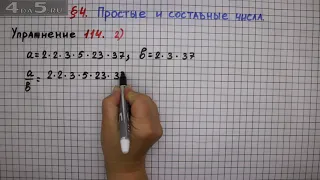 4DA5.RU
§4. Простые и составные числа.
Упражнение 114. 2)
a = 2·2·3·5·23·37, b = 2·3·37
a/b = 2·2·3·5·23·3